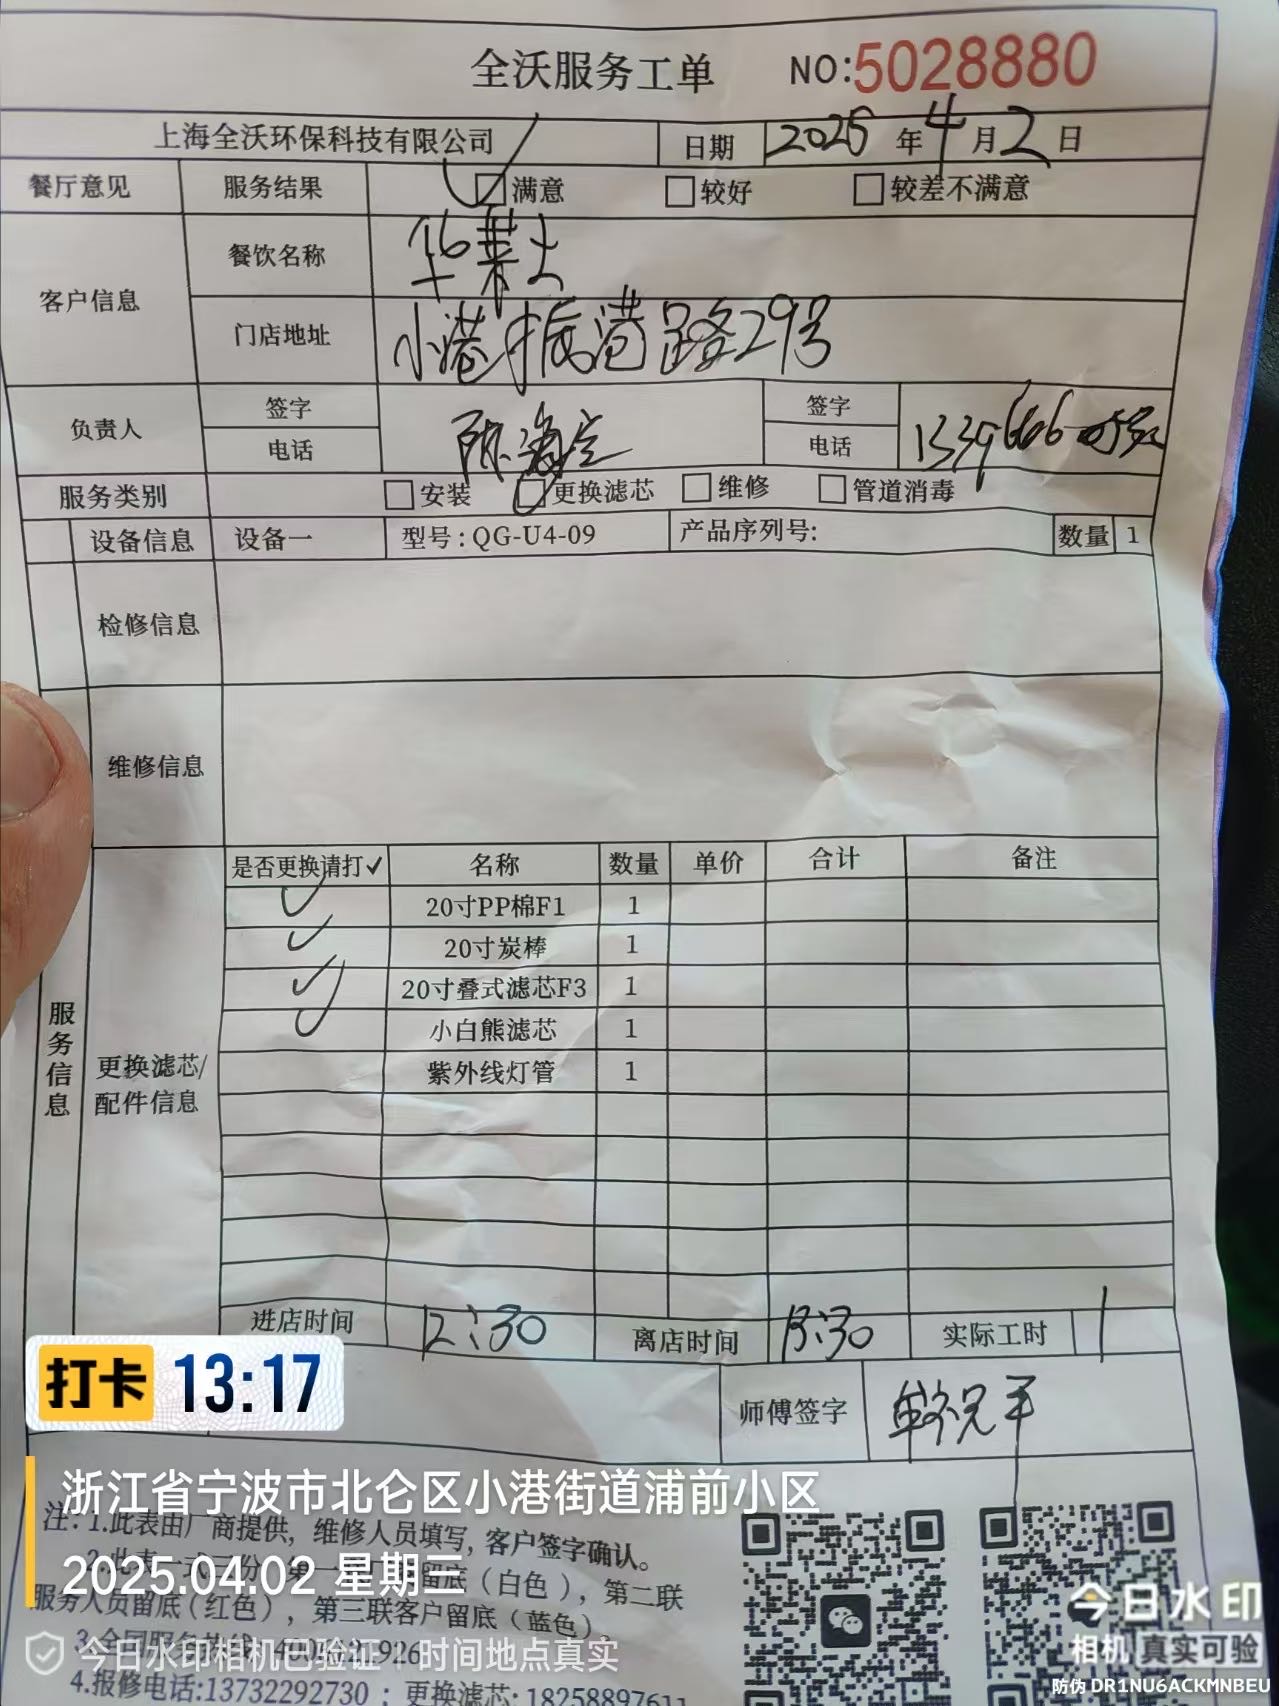 全沃服务工单 NO:5028880
上海全沃环保科技有限公司 日期 2025 年 4 月 2 日
餐厅意见 服务结果 满意 较好 较差不满意
客户信息 餐饮名称 华莱士
门店地址 小港振港路29号
负责人 签字 签字
电话 电话 1339666
服务类别 安装 更换滤芯 维修 管道消毒
设备信息 设备一 型号:QG-U4-09 产品序列号: 数量 1
检修信息
维修信息
服务信息
更换滤芯/
配件信息
是否更换请打✓ 名称 数量 单价 合计 备注
✓ 20寸PP棉F1 1
✓ 20寸炭棒 1
✓ 20寸叠式滤芯F3 1
✓ 小白熊滤芯 1
紫外线灯管 1
进店时间 12:30 离店时间 13:30 实际工时 1
打卡 13:17
师傅签字
浙江省宁波市北仑区小港街道浦前小区
注:1.此表由厂商提供，维修人员填写，客户签字确认。
2025.04.02 星期三
留底（白色），第二联
服务人员留底(红色)，第三联客户留底（蓝色）。
今日水印相机已验证 时间地点真实
4.报修电话:13732292730；更换滤芯:1825889761
今日水印
相机 真实可验
防伪 DR1NU6ACKMNBEU